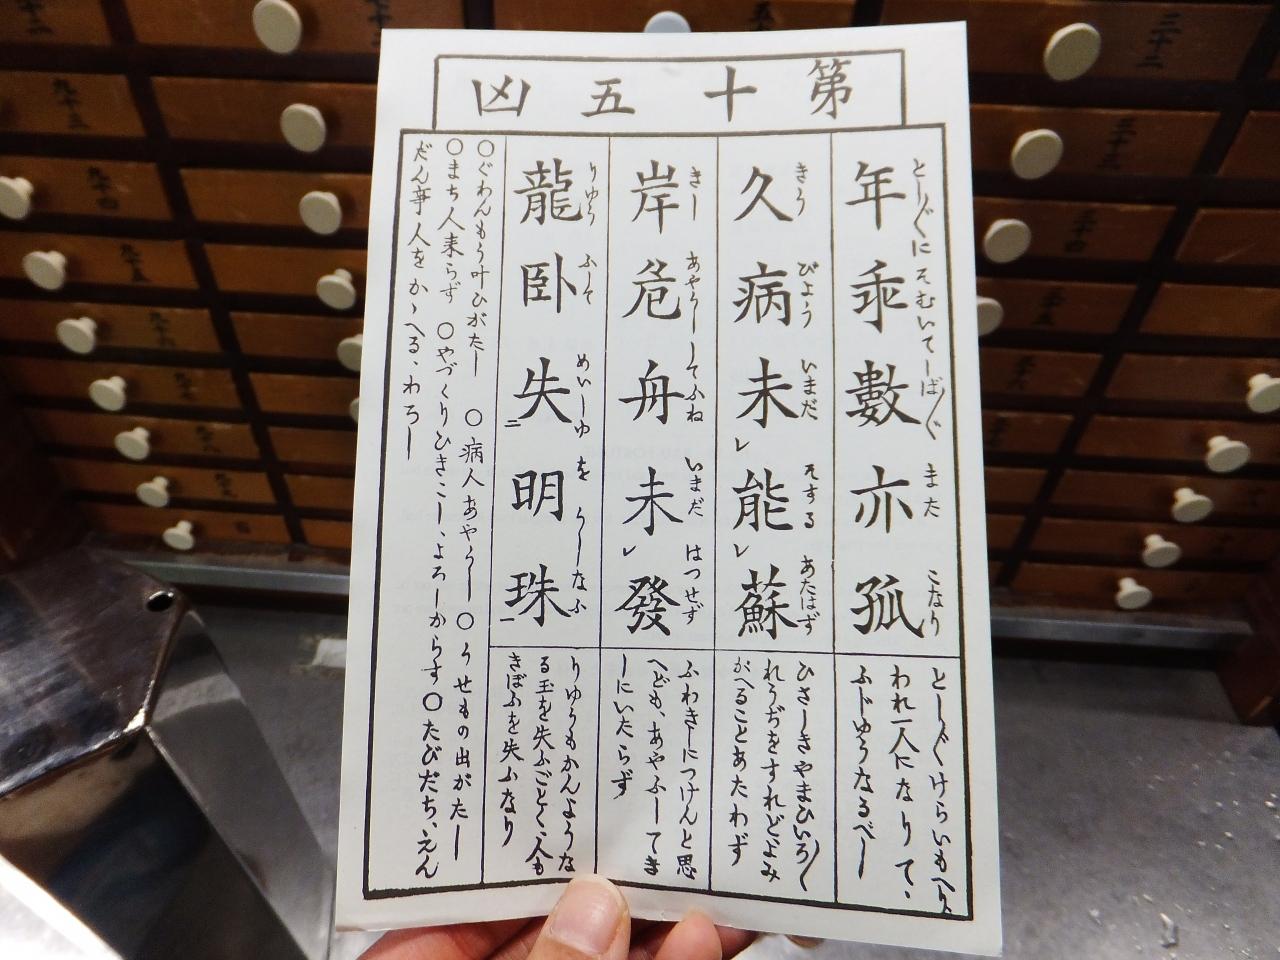 第十五凶
年乖數亦孤
とし〴〵にそむいてしば〳〵
また
こなり
とし〴〵けらいもへり、
われ一人になりて、
ふじゆうなるべし
久病未能蘇
きう
びよう
いまだ
そする
あたはず
レ
レ
ひさしきやまひいろ〳〵
れうぢをすれどよみ
がへることあたわず
岸危舟未發
きし
あやうーしてふね
いまだ
はつせず
レ
ふわきしにつけんと思
へども、あやふーしてき
しにいたらず
龍卧失明珠
りゆう
ふして
めいしゆ
を
うしなふ
二
一
りゆうもかんような
る玉を失ふごとく、人も
きぼふを失ふなり
〇ぐわんもう叶ひがたし 〇病人あやうし 〇うせもの出がたし
〇まち人来らず 〇やづくりひきこし、よろしからす 〇たびだち、えん
だん亊人をかゝへる、わろし
九十三
九十四
九十五
三十三
三十四